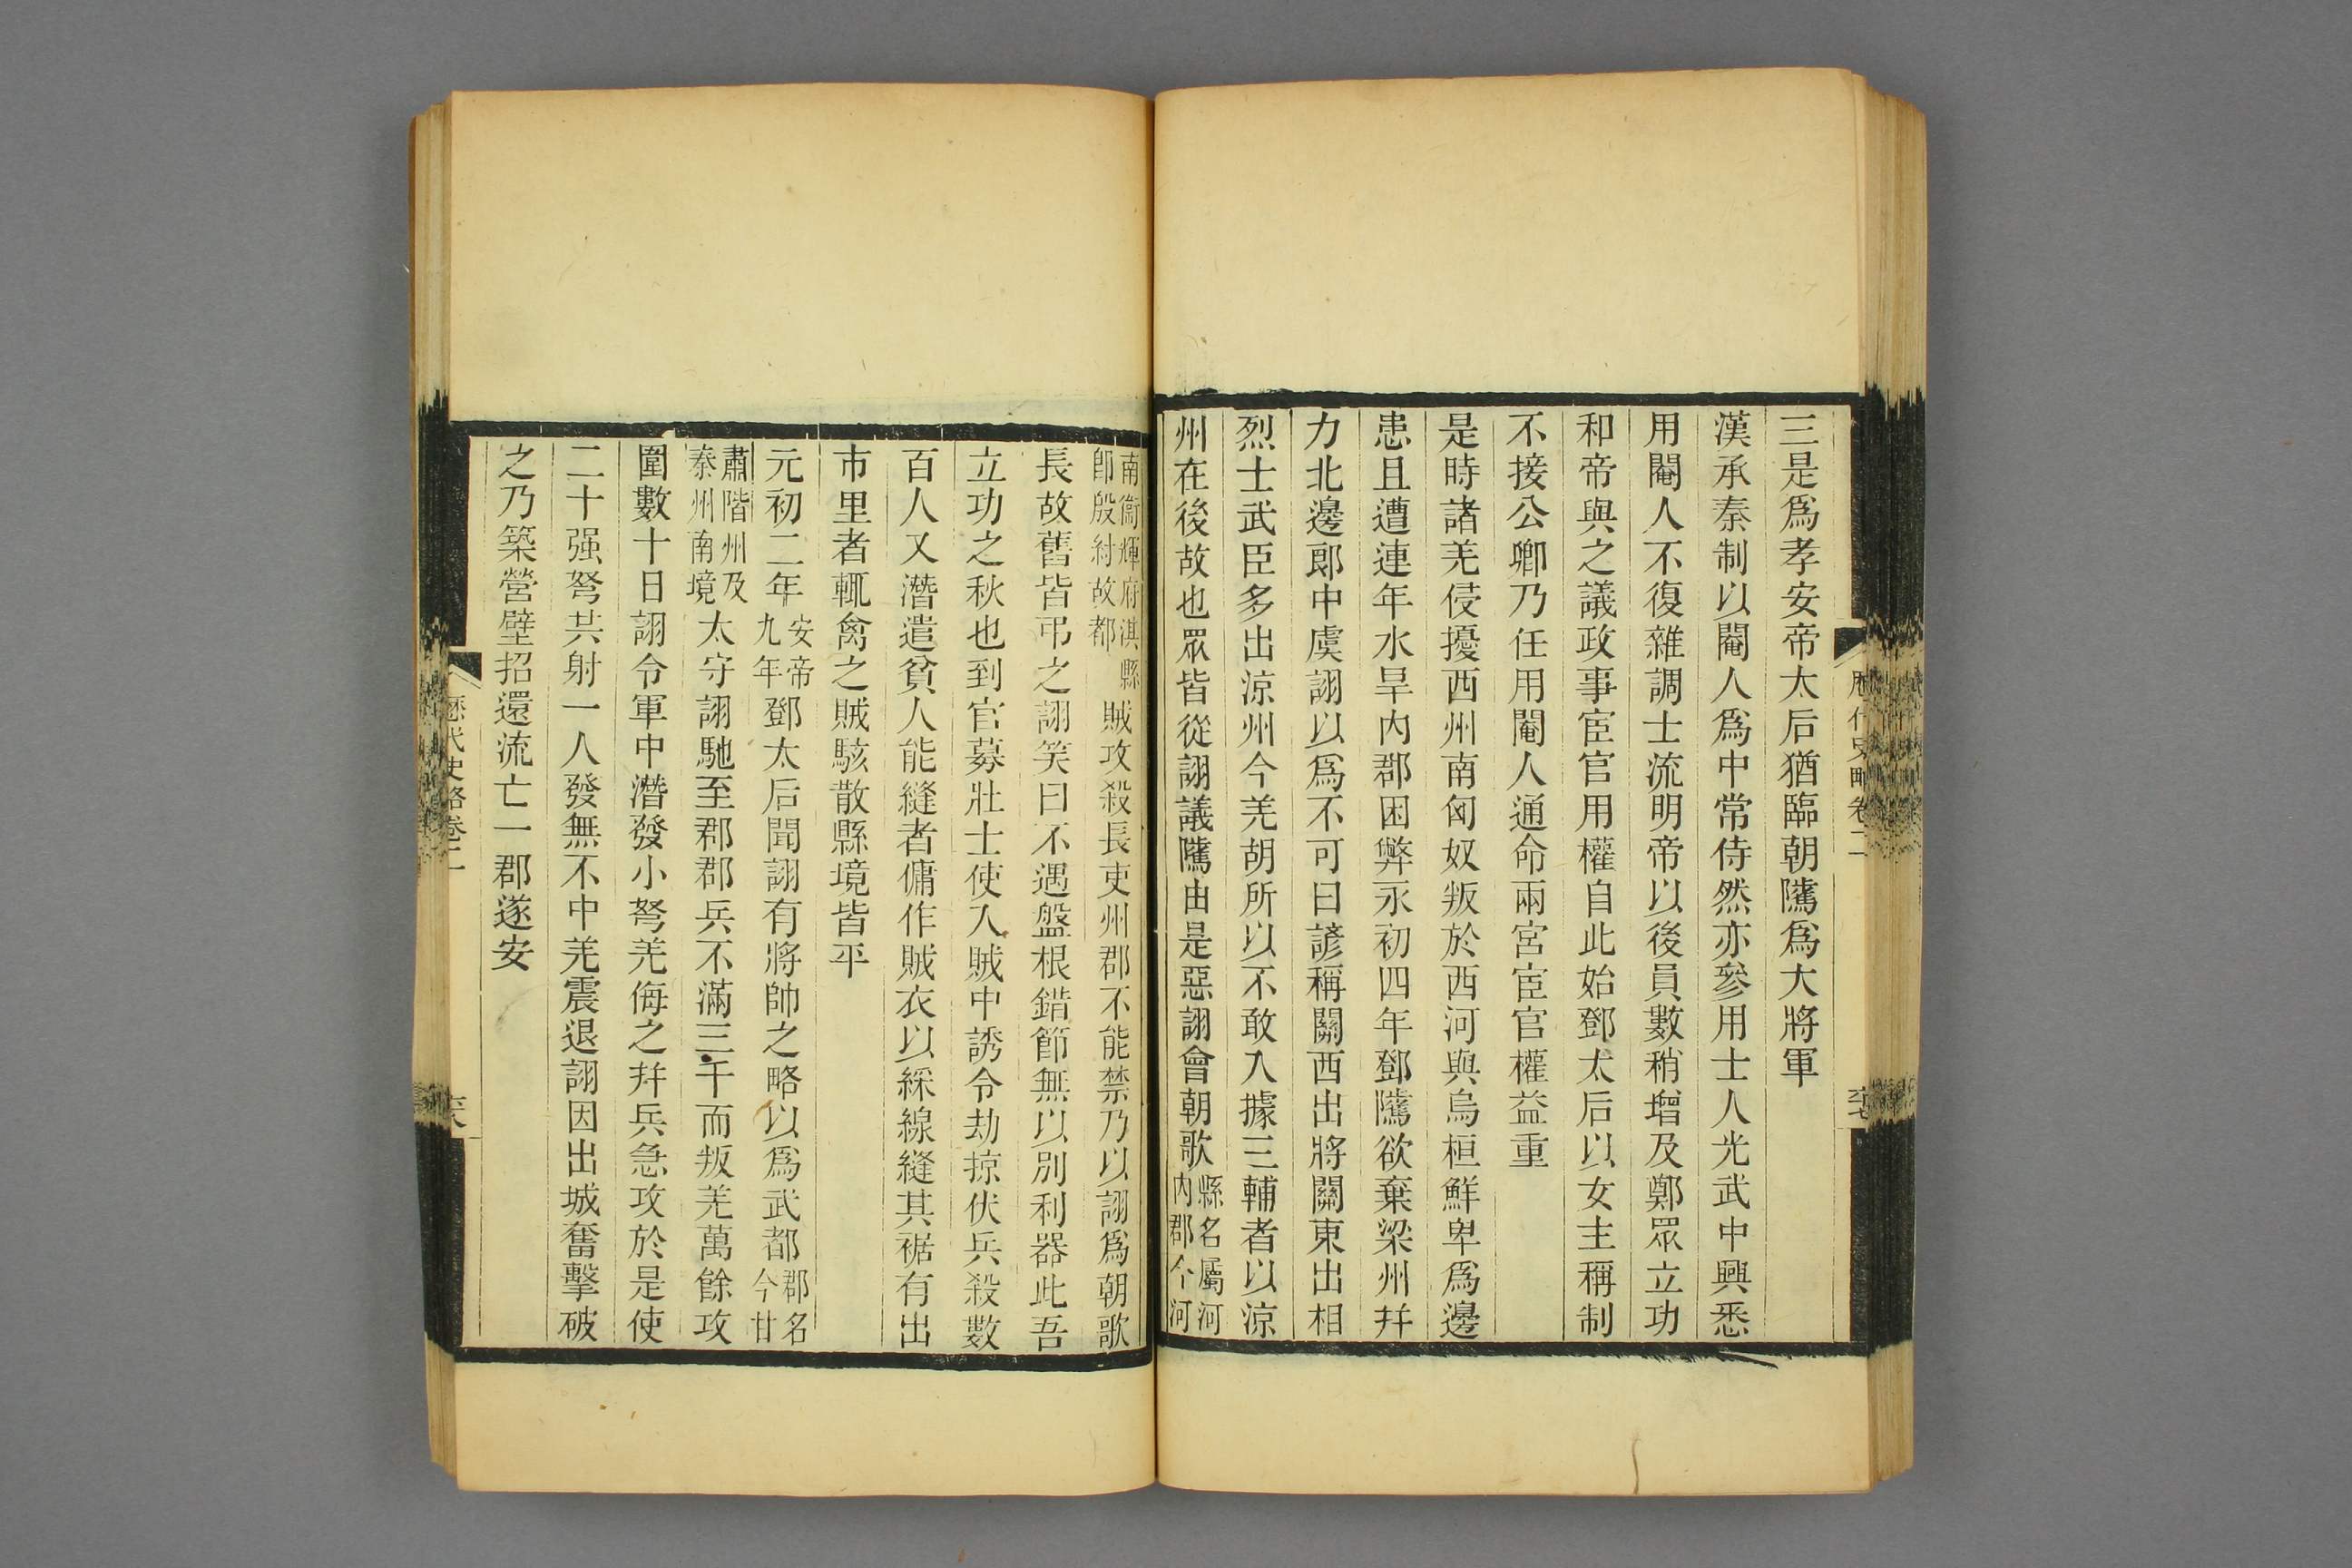 三是爲孝安帝太后猶臨朝隲爲大將軍
漢承秦制以閹人爲中常侍然亦參用士人光武中興悉
用閹人不復雜調士流明帝以後員數稍增及鄭眾立功
和帝與之議政事宦官用權自此始鄧太后以女主稱制
不接公卿乃任用閹人通命兩宮宦官權益重
是時諸羌侵擾西州南匈奴叛於西河與烏桓鮮卑爲邊
患且遭連年水旱內郡困弊永初四年鄧隲欲棄梁州幷
力北邊郎中虞詡以爲不可曰諺稱關西出將關東出相
烈士武臣多出涼州今羌胡所以不敢入據三輔者以涼
州在後故也眾皆從詡議隲由是惡詡會朝歌縣名屬河內郡今河
南衞輝府淇縣卽殷紂故都賊攻殺長吏州郡不能禁乃以詡爲朝歌
長故舊皆弔之詡笑曰不遇盤根錯節無以別利器此吾
立功之秋也到官募壯士使入賊中誘令劫掠伏兵殺數
百人又潛遣貧人能縫者傭作賊衣以綵線縫其裾有出
市里者輒禽之賊駭散縣境皆平
元初二年安帝九年鄧太后聞詡有將帥之略以爲武都郡名今甘
肅階州及秦州南境太守詡馳至郡郡兵不滿三千而叛羌萬餘攻
圍數十日詡令軍中潛發小弩羌侮之幷兵急攻於是使
二十强弩共射一人發無不中羌震退詡因出城奮擊破
之乃築營壁招還流亡一郡遂安
歷代史略卷二
六十七
歷代史略卷二
六十八